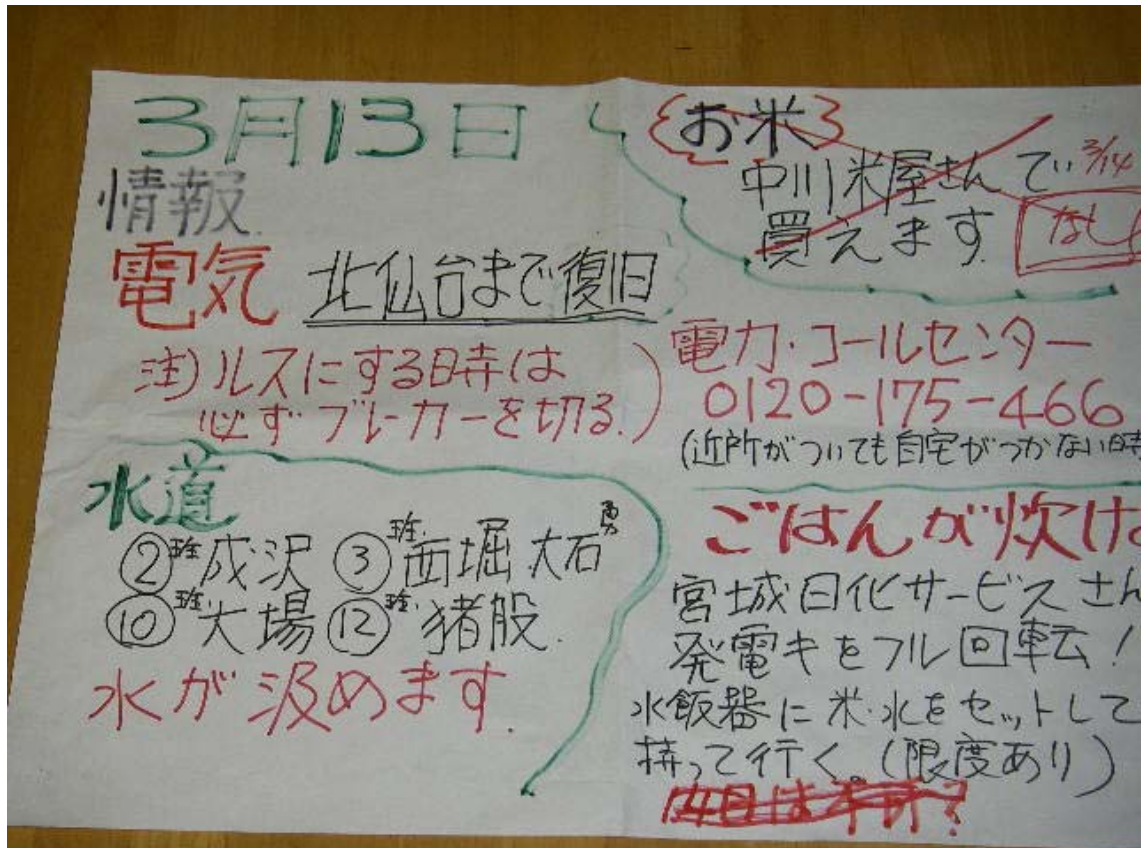 3月13日
情報
電気 北仙台まで復旧
注)ルスにする時は
必ずブレーカーを切る.)
水道
②班成沢 ③班西堀 大石
⑩班大場 ⑫班猪股.
水が汲めます.
お米
中川米屋さん でい 3/14
買えます. なし
電力・コールセンター
0120-175-466
(近所がついても自宅がつかない時
ごはんが炊け
宮城日化サービスさん
発電キをフル回転!
水飯器に米・水をセットして
持って行く。(限度あり)
14日は不可?